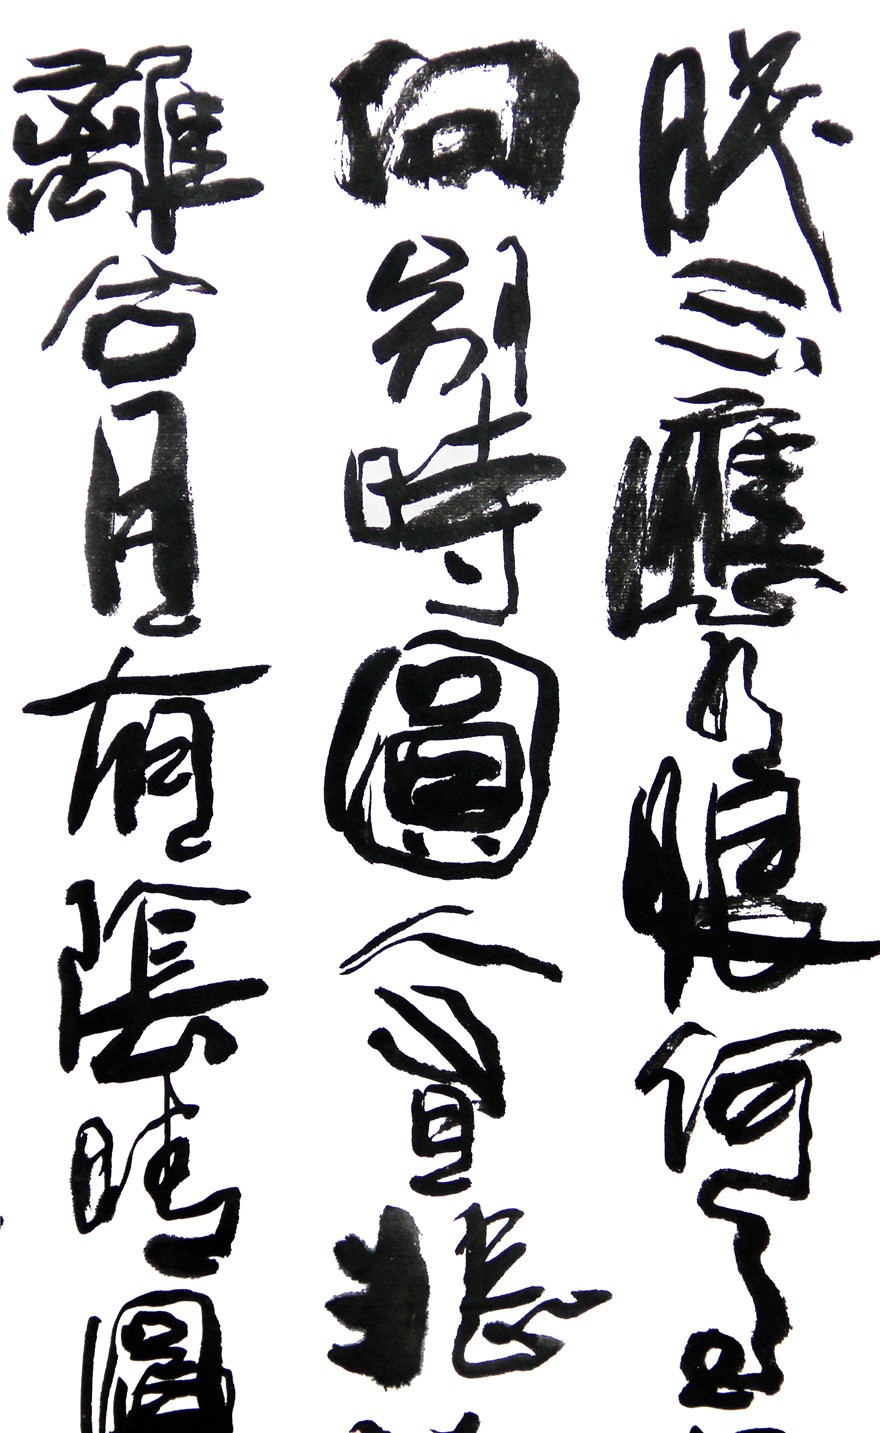 眠不應有恨何事
向別時圓人有悲
離合月有陰晴圓